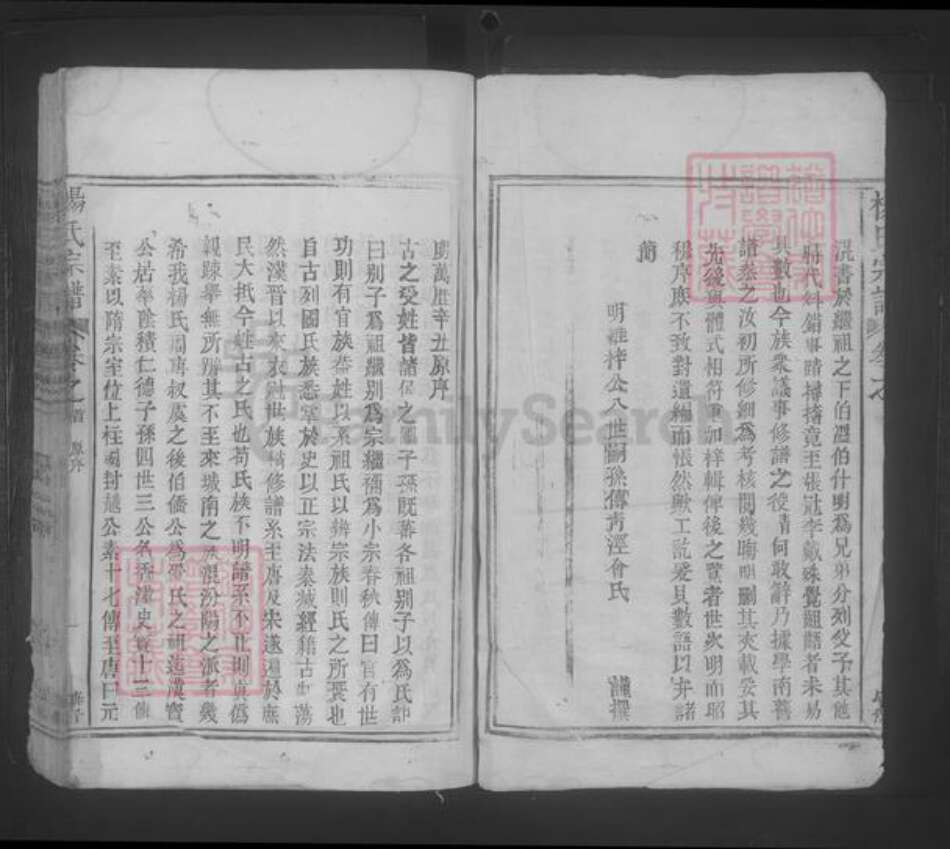 混書於繼祖之下伯遐伯什明為兄弟分列父子其他
將代斜錯事蹟摶撦竟至張冠李戴殊覺齟齬者未易
具數也今族衆議事修譜之役靖何敢辭乃據學南舊
譜叅之汝初所修細為考核閱幾晦明刪其夾載妥其
先後與體式相符重加梓輯俾後之覽者世次明而昭
穆序庶不致對遺編而悵然歟工訖爰具數語以弁諸
簡
明維梓公八世嗣孫傳靑涇會氏 謹撰
明萬歷辛丑原序
古之受姓皆諸侯之國子孫既蕃各祖别子以為氏記
曰别子為祖繼别為宗繼禰為小宗春秋傳曰官有世
功則有官族葢姓以系祖氏以辨宗族則氏之所聚也
自古列國氏族悉掌於史以正宗法秦滅經籍古制蕩
然漢晉以來衣冠世族稍修譜系至唐及宋遂通於庶
民大抵今姓古之氏也苟氏族不明譜系不正則眞僞
親踈舉無所辨其不至來城南之 混汾陽之派者幾
希我楊氏周唐叔虞之後伯僑公為 氏之祖迄漢寳
公居華陰積仁德子孫四世三公名 漢史寳十三傳
至素以隋宗室位上柱國封越公素十七傳至唐曰元
楊氏宗譜 卷之首 原序
楊氏宗譜 卷之